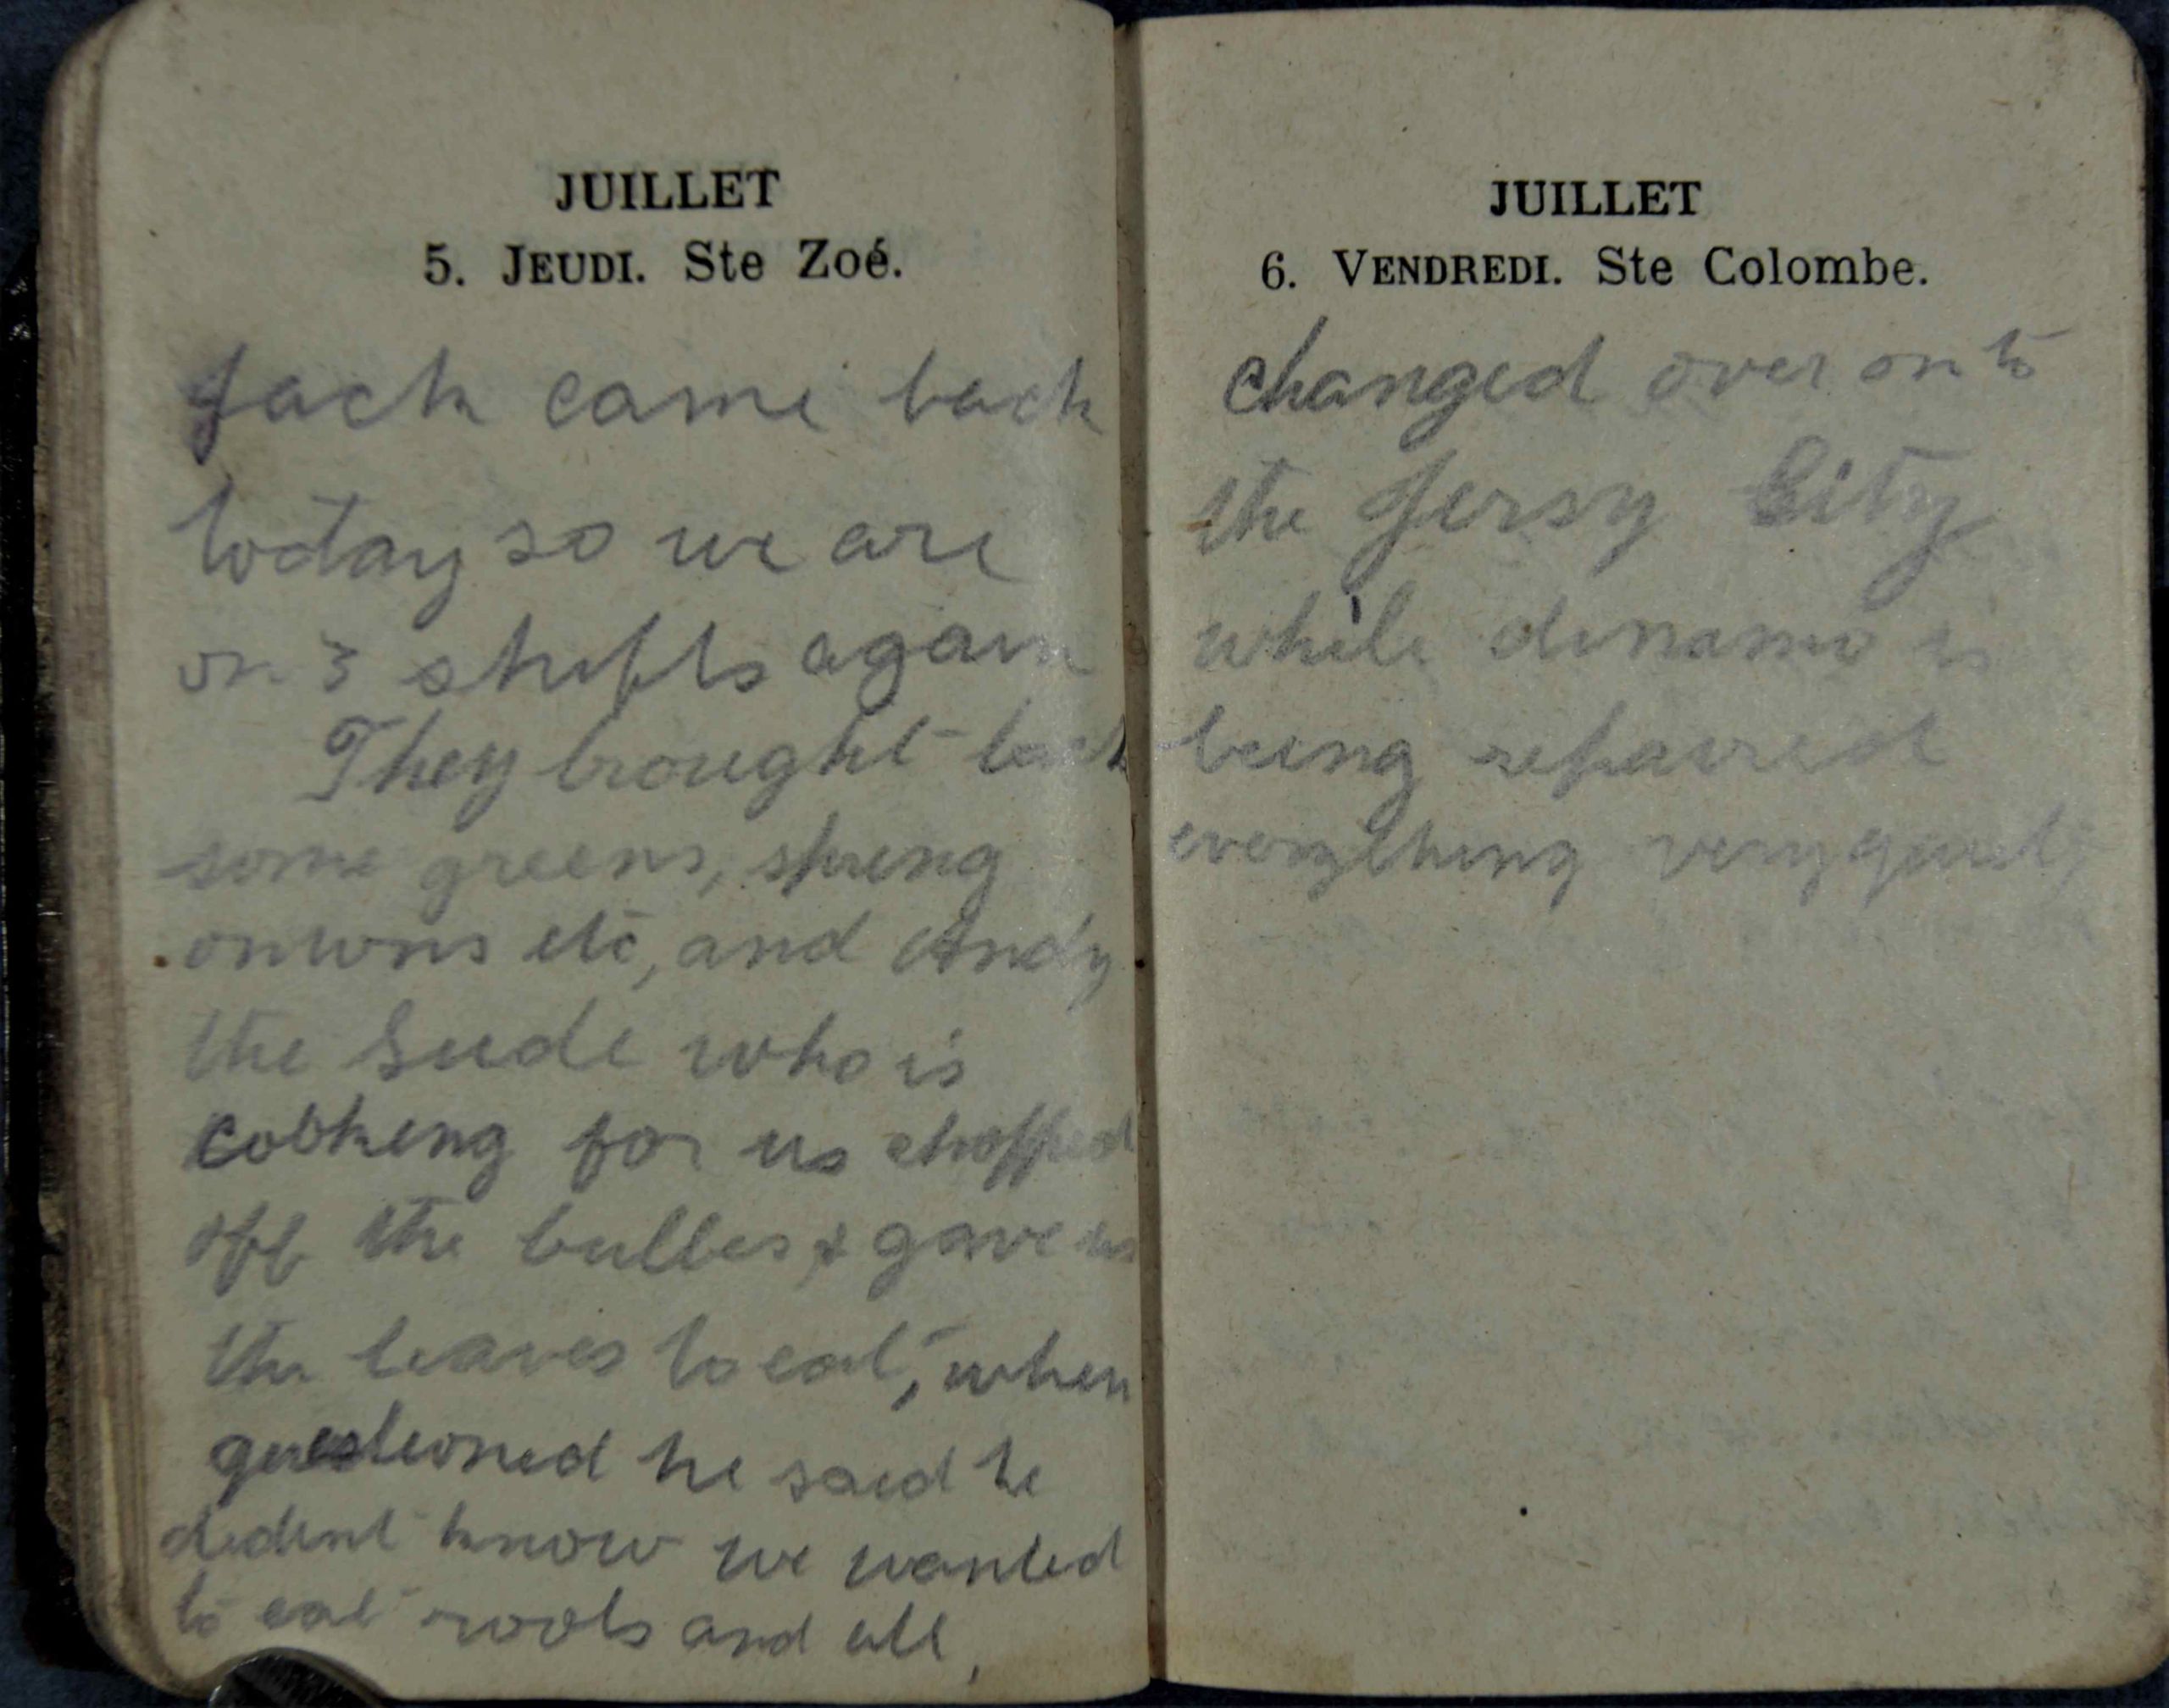 JUILLET
5. JEUDI. Ste Zoé.
Jack came back
today so we are
on 3 shifts again
They brought back
some greens, spring
onions etc, and Andy
the Sude who is
cooking for us chopped
off the bulbes & gave us
the leaves to eat, when
questioned he said he
dident know we wanted
to eat roots and all,
JUILLET
6. VENDREDI. Ste Colombe.
changed over on to
the Jersy City
while dinamo is
being repaired
everything very quiet,